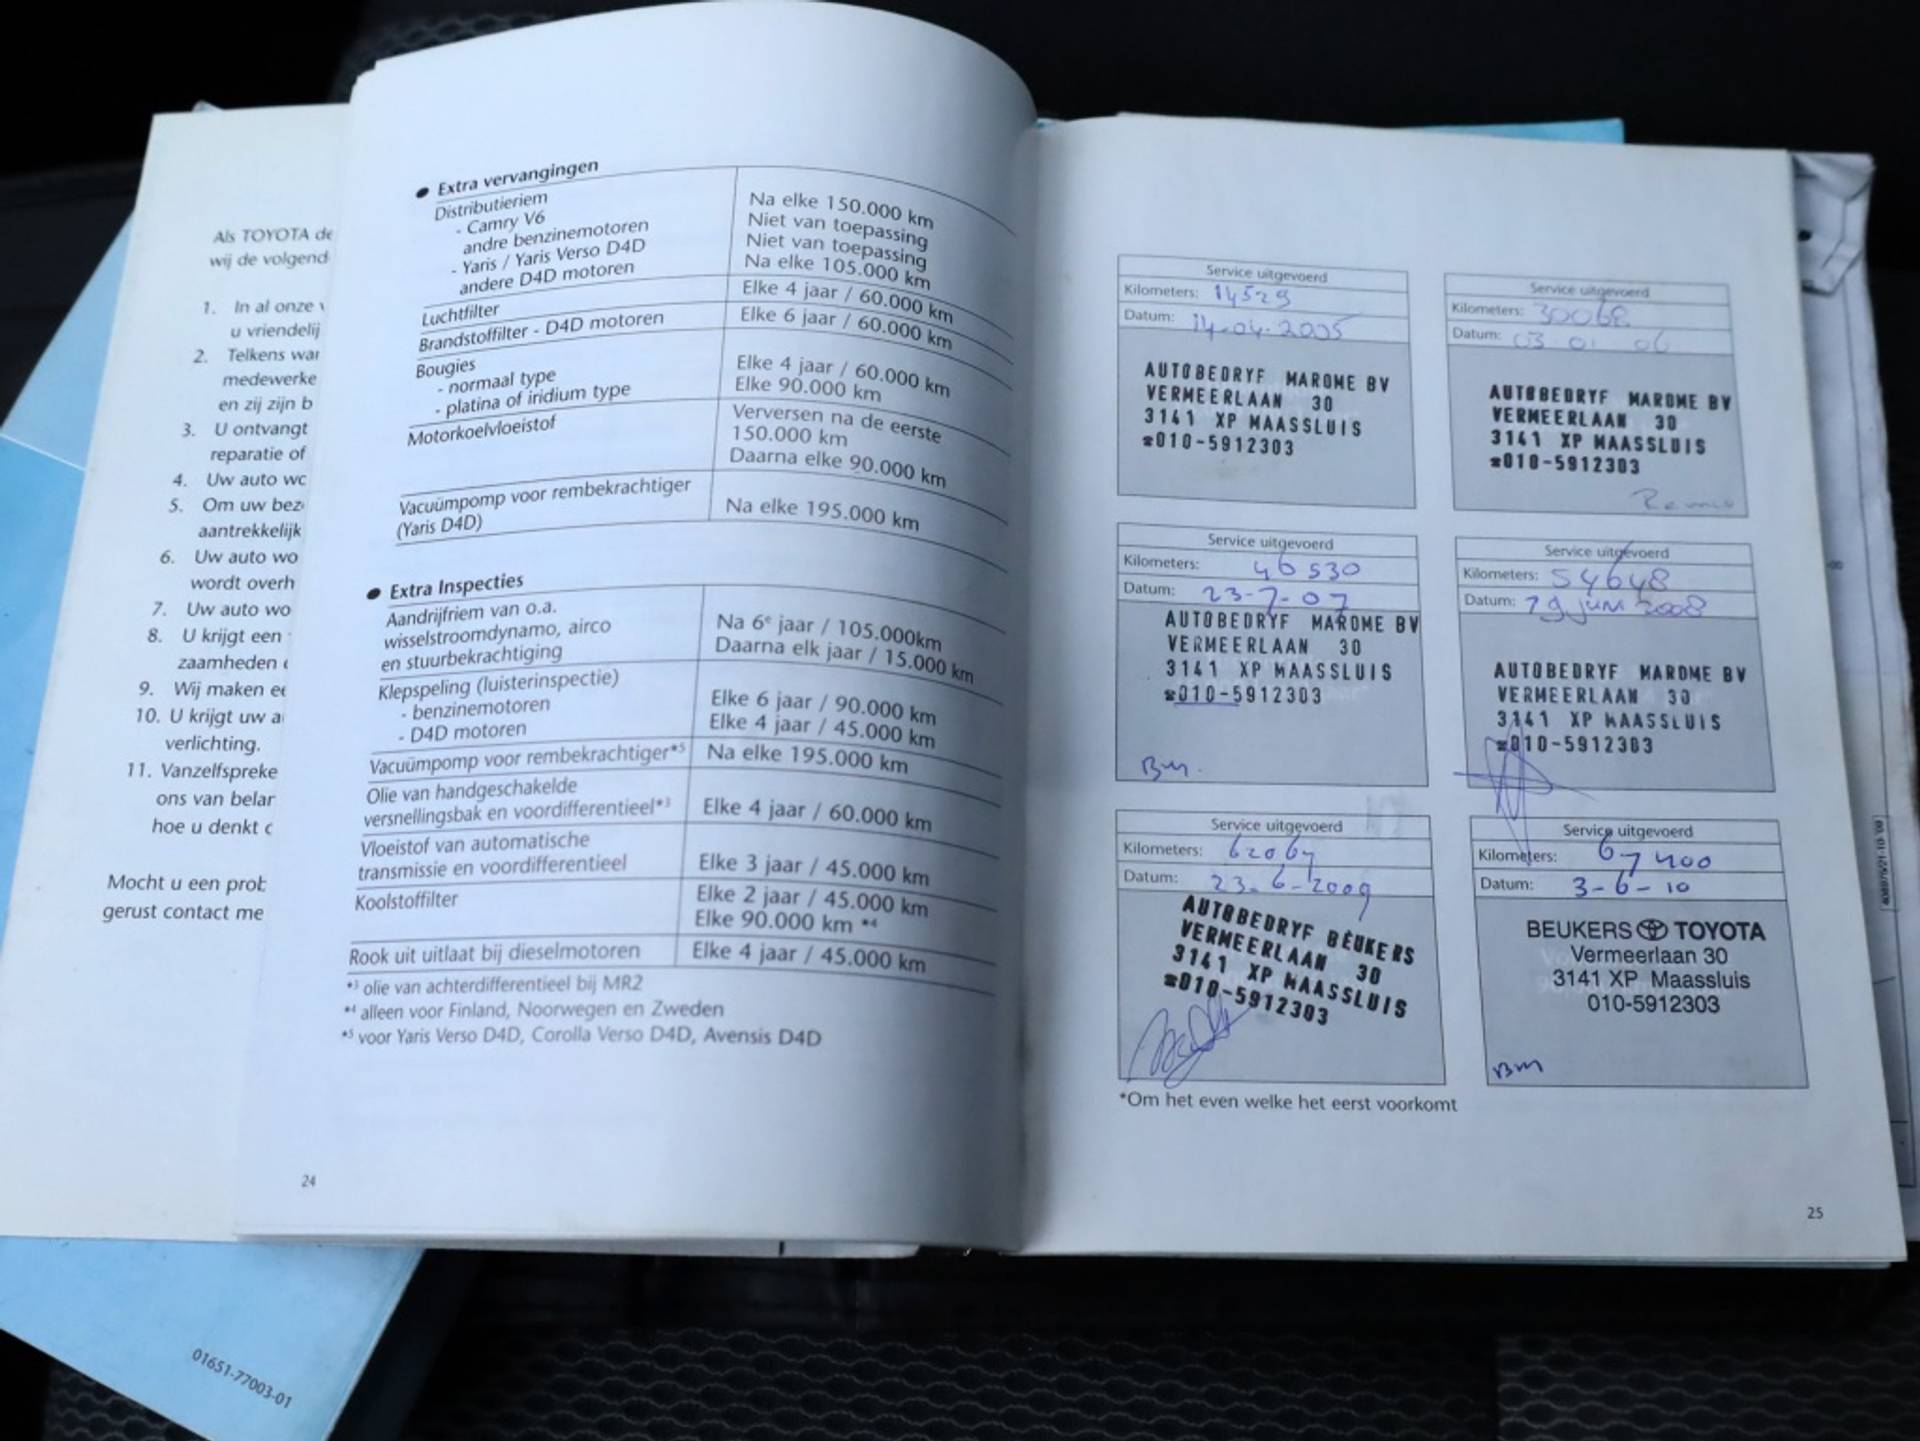 Als TOYOTA de
wij de volgend
1. In al onze v
u vriendelij
2. Telkens wan
medewerke
en zij zijn b
3. U ontvangt
reparatie of
4. Uw auto wo
5. Om uw bez
aantrekkelijk
6. Uw auto wo
wordt overh
7. Uw auto wo
8. U krijgt een
zaamheden
9. Wij maken ee
10. U krijgt uw a
verlichting.
11. Vanzelfspreke
ons van belan
hoe u denkt
Mocht u een prob
gerust contact me
01651-77003-01
● Extra vervangingen
Distributieriem
- Camry V6 Na elke 150.000 km
andre benzinemotoren Niet van toepassing
- Yaris / Yaris Verso D4D Niet van toepassing
andere D4D motoren Na elke 105.000 km
Luchtfilter Elke 4 jaar / 60.000 km
Brandstoffilter - D4D motoren Elke 6 jaar / 60.000 km
Bougies
- normaal type Elke 4 jaar / 60.000 km
- platina of iridium type Elke 90.000 km
Motorkoelvloeistof Verversen na de eerste
150.000 km
Daarna elke 90.000 km
Vacuümpomp voor rembekrachtiger
(Yaris D4D) Na elke 195.000 km
● Extra Inspecties
Aandrijfriem van o.a.
wisselstroomdynamo, airco Na 6e jaar / 105.000km
en stuurbekrachtiging Daarna elk jaar / 15.000 km
Klepspeling (luisterinspectie)
- benzinemotoren Elke 6 jaar / 90.000 km
- D4D motoren Elke 4 jaar / 45.000 km
Vacuümpomp voor rembekrachtiger*5 Na elke 195.000 km
Olie van handgeschakelde
versnellingsbak en voordifferentieel*3 Elke 4 jaar / 60.000 km
Vloeistof van automatische
transmissie en voordifferentieel Elke 3 jaar / 45.000 km
Koolstoffilter Elke 2 jaar / 45.000 km
Elke 90.000 km *4
Rook uit uitlaat bij dieselmotoren Elke 4 jaar / 45.000 km
*3 olie van achterdifferentieel bij MR2
*4 alleen voor Finland, Noorwegen en Zweden
*5 voor Yaris Verso D4D, Corolla Verso D4D, Avensis D4D
24
Service uitgevoerd
Kilometers: 14529
Datum: 14-04-2005
AUTOBEDRYF MAROME BV
VERMEERLAAN 30
3141 XP MAASSLUIS
☎010-5912303
Service uitgevoerd
Kilometers: 30068
Datum: 03 01 06
AUTOBEDRYF MAROME BV
VERMEERLAAN 30
3141 XP MAASSLUIS
☎010-5912303
Service uitgevoerd
Kilometers: 46530
Datum: 23-7-07
AUTOBEDRYF MAROME BV
VERMEERLAAN 30
3141 XP MAASSLUIS
☎010-5912303
Bm.
Service uitgevoerd
Kilometers: 54648
Datum: 19 juni 2008
AUTOBEDRYF MAROME BV
VERMEERLAAN 30
3141 XP MAASSLUIS
☎010-5912303
Service uitgevoerd
Kilometers: 62067
Datum: 23-6-2009
AUTOBEDRYF BEUKERS
VERMEERLAAN 30
3141 XP MAASSLUIS
☎010-5912303
Service uitgevoerd
Kilometers: 67400
Datum: 3-6-10
BEUKERS TOYOTA
Vermeerlaan 30
3141 XP Maassluis
010-5912303
Bm
*Om het even welke het eerst voorkomt
25